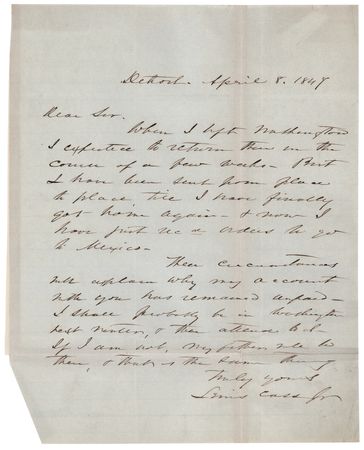 Detroit. April 8. 1847
Dear Sir.
When I left Washington
I expected to return there in the
course of a few weeks - But
I have been sent from place
to place, till I have finally
got home again - & now I
have just rec'd orders to go
to Mexico -
These circumstances
will explain why my account
with you has remained unpaid -
I shall probably be in Washington
next winter, & then attend to it -
If I am not, my father will be
there, & that is the same thing
Truly yours
Lewis Cass Jr